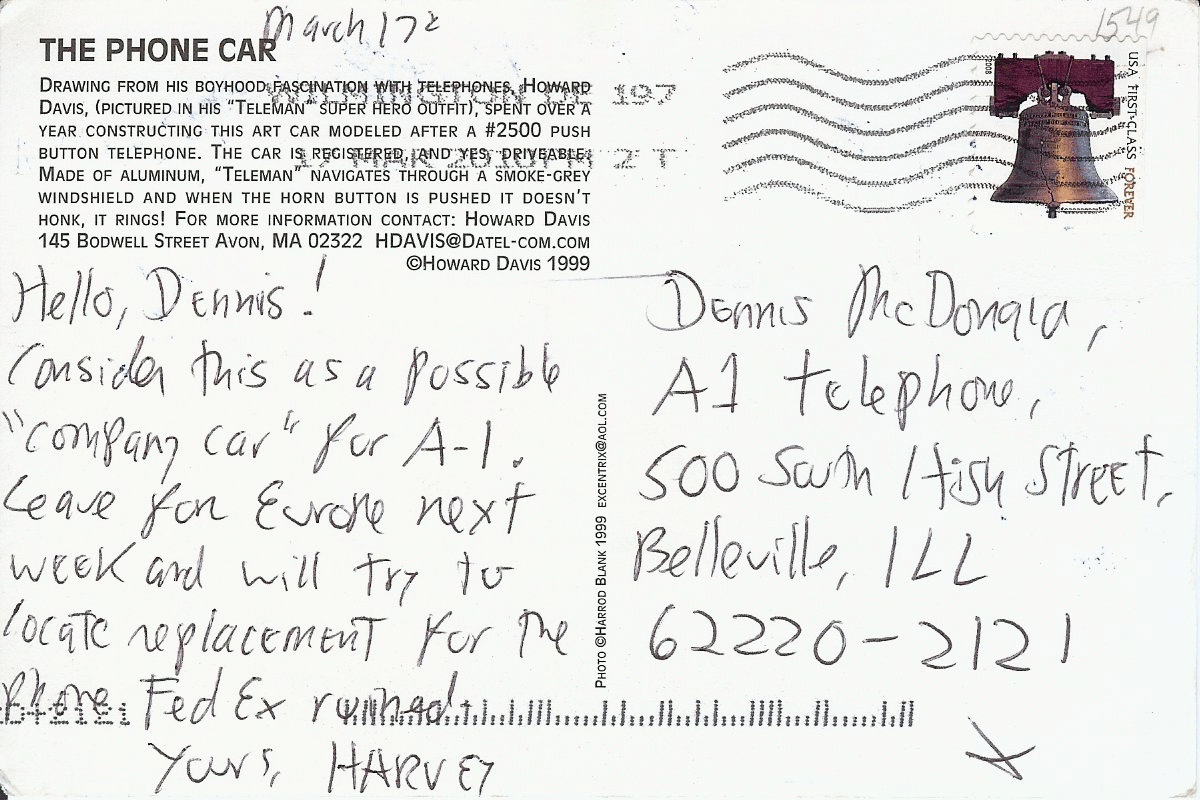 March 17
1549
THE PHONE CAR
DRAWING FROM HIS BOYHOOD FASCINATION WITH TELEPHONES, HOWARD
DAVIS, (PICTURED IN HIS "TELEMAN" SUPER HERO OUTFIT), SPENT OVER A
YEAR CONSTRUCTING THIS ART CAR MODELED AFTER A #2500 PUSH
BUTTON TELEPHONE. THE CAR IS REGISTERED, AND YES, DRIVEABLE.
MADE OF ALUMINUM, "TELEMAN" NAVIGATES THROUGH A SMOKE-GREY
WINDSHIELD AND WHEN THE HORN BUTTON IS PUSHED IT DOESN'T
HONK, IT RINGS! FOR MORE INFORMATION CONTACT: HOWARD DAVIS
145 BODWELL STREET AVON, MA 02322 HDAVIS@DATEL-COM.COM
©HOWARD DAVIS 1999
WILMINGTON DE 197
17 MAR 2 T
2008
USA FIRST-CLASS FOREVER
Hello, Dennis!
Consider this as a possible
"company car" for A-1.
Leave for Europe next
week and will try to
locate replacement for the
phone FedEx ruined.
Yours, HARVEY
PHOTO ©HARROD BLANK 1999 EXCENTRIX@AOL.COM
Dennis McDonald,
A1 Telephone,
500 South High Street,
Belleville, ILL
62220-2121